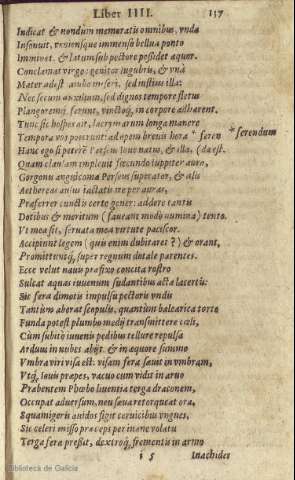 Liber IIII. 137
Indicat & nondum memoratis omnibus, vnda
Insonuit, veniensque immenso bellua ponto
Imminet, & latum sub pectore possidet æquor.
Conclamat virgo: genitor lugubris, & vnà
Mater adest ambo miseri, sed iustius illa:
Nec secum auxilium, sed dignos tempore fletus
Plangoremq́; ferunt, vinctoq́; in corpore adhærent.
Tunc sic hospes ait, lacrymarum longa manere
Tempora vos poterunt: ad opem breuis hora * feren * ferendum
Hanc ego si peterē Perseus Ioue natus, & illa, (da est.
Quam clausam impleuit fœcundo Iuppiter auro,
Gorgonis anguicomæ Perseus superator, & alis
Aethereas ausus iactatis ire per auras,
Præferrer cunctis certe gener: addere tantis
Dotibus & meritum (faueant modò numina) tento.
Vt mea sit, seruata mea virtute paciscor.
Accipiunt legem (quis enim dubitaret?) & orant,
Promittuntq́; super regnum dotale parentes.
Ecce velut nauis præfixo concita rostro
Sulcat aquas iuuenum sudantibus acta lacertis:
Sic fera dimotis impulsu pectoris vndis
Tantùm aberat scopulis, quantùm balearica torto
Funda potest plumbo medij transmittere cæli,
Cùm subitò iuuenis pedibus tellure repulsa
Arduus in nubes abijt. & in æquore summo
Vmbra viri visa est: visam fera sæuit in vmbram,
Vtq́; Iouis præpes, vacuo cum vidit in aruo
Præbentem Phœbo liuentia terga draconem,
Occupat aduersum, neu sæua retorqueat ora,
Squamigeris auidos figit ceruicibus vngues,
Sic celeri misso præceps per inane volatu
Terga feræ pressit, dextroq́; frementis in armo
i 5 Inachides
Biblioteca de Galicia